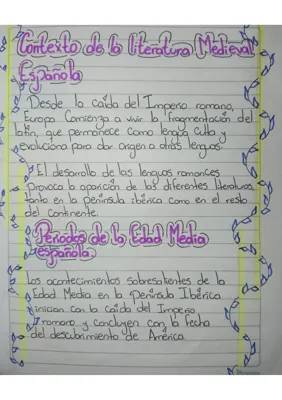 Contexto de la literatura Medieval
Española
Desde la caída del Imperio romano,
Europa Comienza a vivir la fragmentación del
latín, que permanece como lengua culta y
evoluciona para dar origen a otras lenguas.
El desarrollo de las lenguas romances
Provoca la aparición de las diferentes literaturas
tanto en la península ibérica como en el resto
del continente.
Periodos de la Edad Media
española.
Los acontecimientos sobresalientes de la
Edad Media en la Península Ibérica
inician con la caída del Imperio
romano y concluyen con la fecha
del descubrimiento de América.